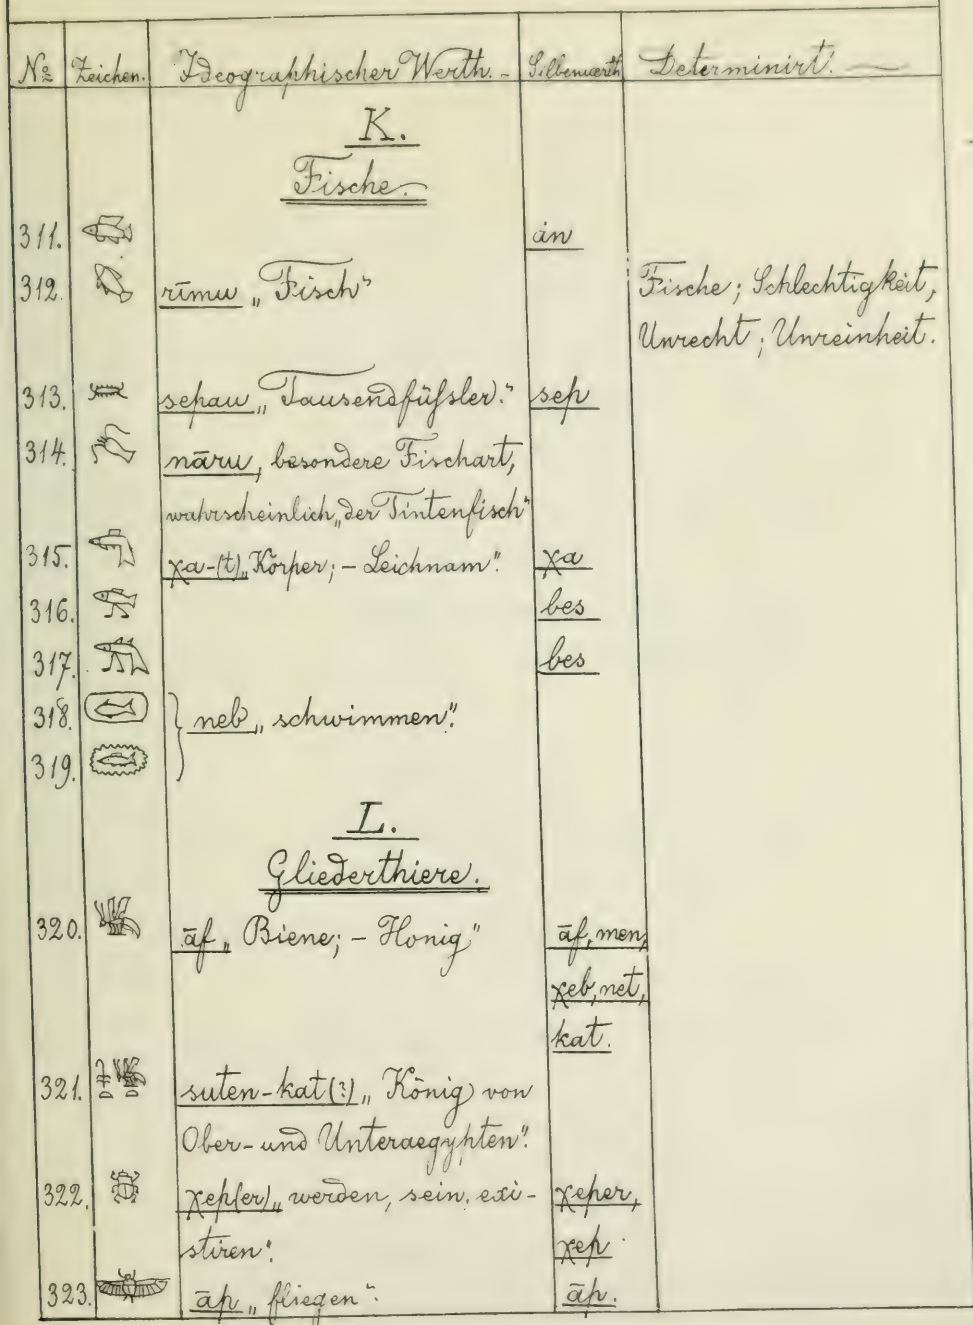 № Zeichen. Ideographischer Werth. - Silbenwerth Determinirt. —
K.
Fische.
311. ån
312. rīmu „Fisch“ Fische; Schlechtigkeit,
Unrecht; Unreinheit.
313. sepau „Tausendfüfsler.“ sep
314. nāru, besondere Fischart,
wahrscheinlich „der Tintenfisch“
315. χa-(t) „Körper; – Leichnam“. χa
316. bes
317. bes
318. neb „schwimmen“.
319.
L.
Gliederthiere.
320. āf „Biene; – Honig“ āf, men,
χeb, net,
kat.
321. suten-kat(?) „König von
Ober- und Unteraegypten“.
322. χep(er) „werden, sein, exi- χeper,
stiren“. χep
323. āp „fliegen“. āp.